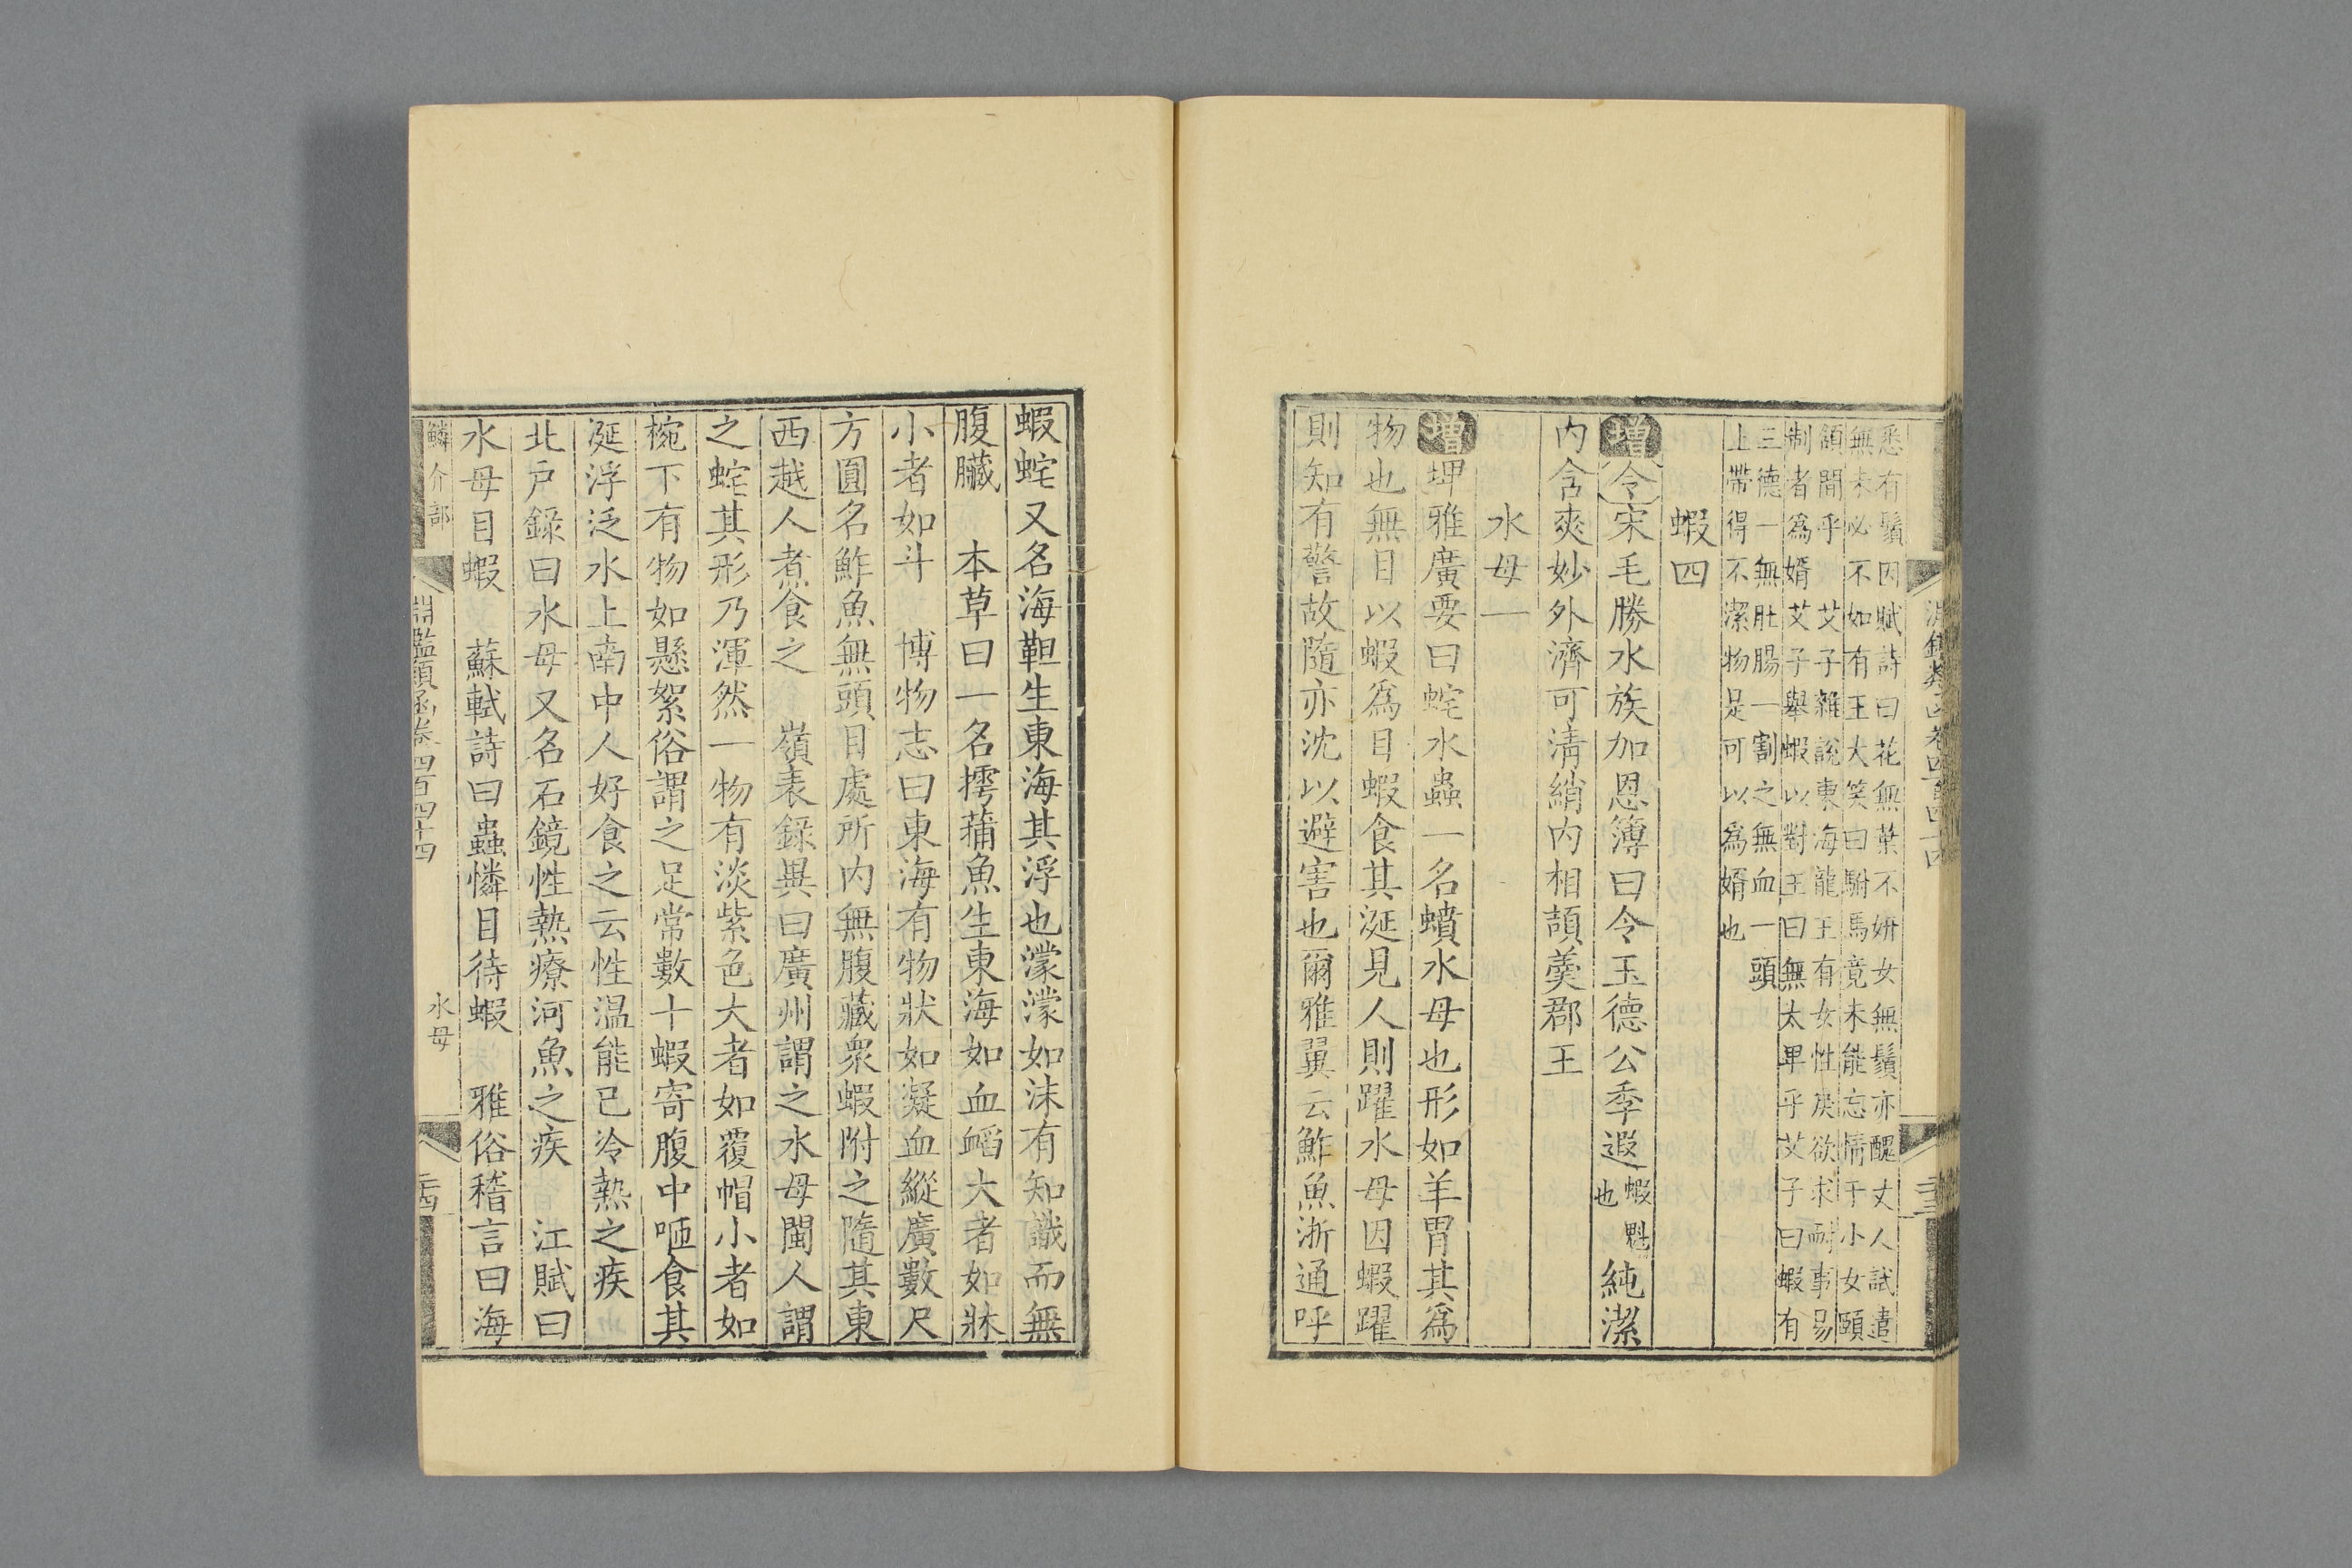 淵鑑類函卷四百四十四
悉有鬚因賦詩曰花無葉不妍女無鬚亦醜丈人試遣
無未必不如有王大笑曰駙馬竟未能忘情于小女頤
頷間乎 艾子雜說東海龍王有女性戾欲求耐事易
制者爲婿艾子舉蝦以對王曰無太卑乎艾子曰蝦有
三德一無肚腸一割之無血一頭
上帶得不潔物是可以爲婿也
蝦四
增令宋毛勝水族加恩簿曰令玉德公季遐蝦魁也純潔
內含爽妙外濟可淸綃內相頡羹郡王
水母一
增埤雅廣要曰蛇水蟲一名蟦水母也形如羊胃其爲
物也無目以蝦爲目蝦食其涎見人則躍水母因蝦躍
則知有警故隨亦沈以避害也爾雅翼云鮓魚浙通呼
蝦蛇又名海靼生東海其浮也濛濛如沫有知識而無
腹臟 本草曰一名樗蒱魚生東海如血䘓大者如牀
小者如斗 博物志曰東海有物狀如凝血縱廣數尺
方圓名鮓魚無頭目處所內無腹藏衆蝦附之隨其東
西越人煮食之 嶺表錄異曰廣州謂之水母閩人謂
之蛇其形乃渾然一物有淡紫色大者如覆帽小者如
椀下有物如懸絮俗謂之足常數十蝦寄腹中咂食其
涎浮泛水上南中人好食之云性溫能已冷熱之疾
北戶錄曰水母又名石鏡性熱療河魚之疾 江賦曰
水母目蝦 蘇軾詩曰蟲憐目待蝦 雅俗稽言曰海
鱗介部 淵鑑類函卷四百四十四 水母